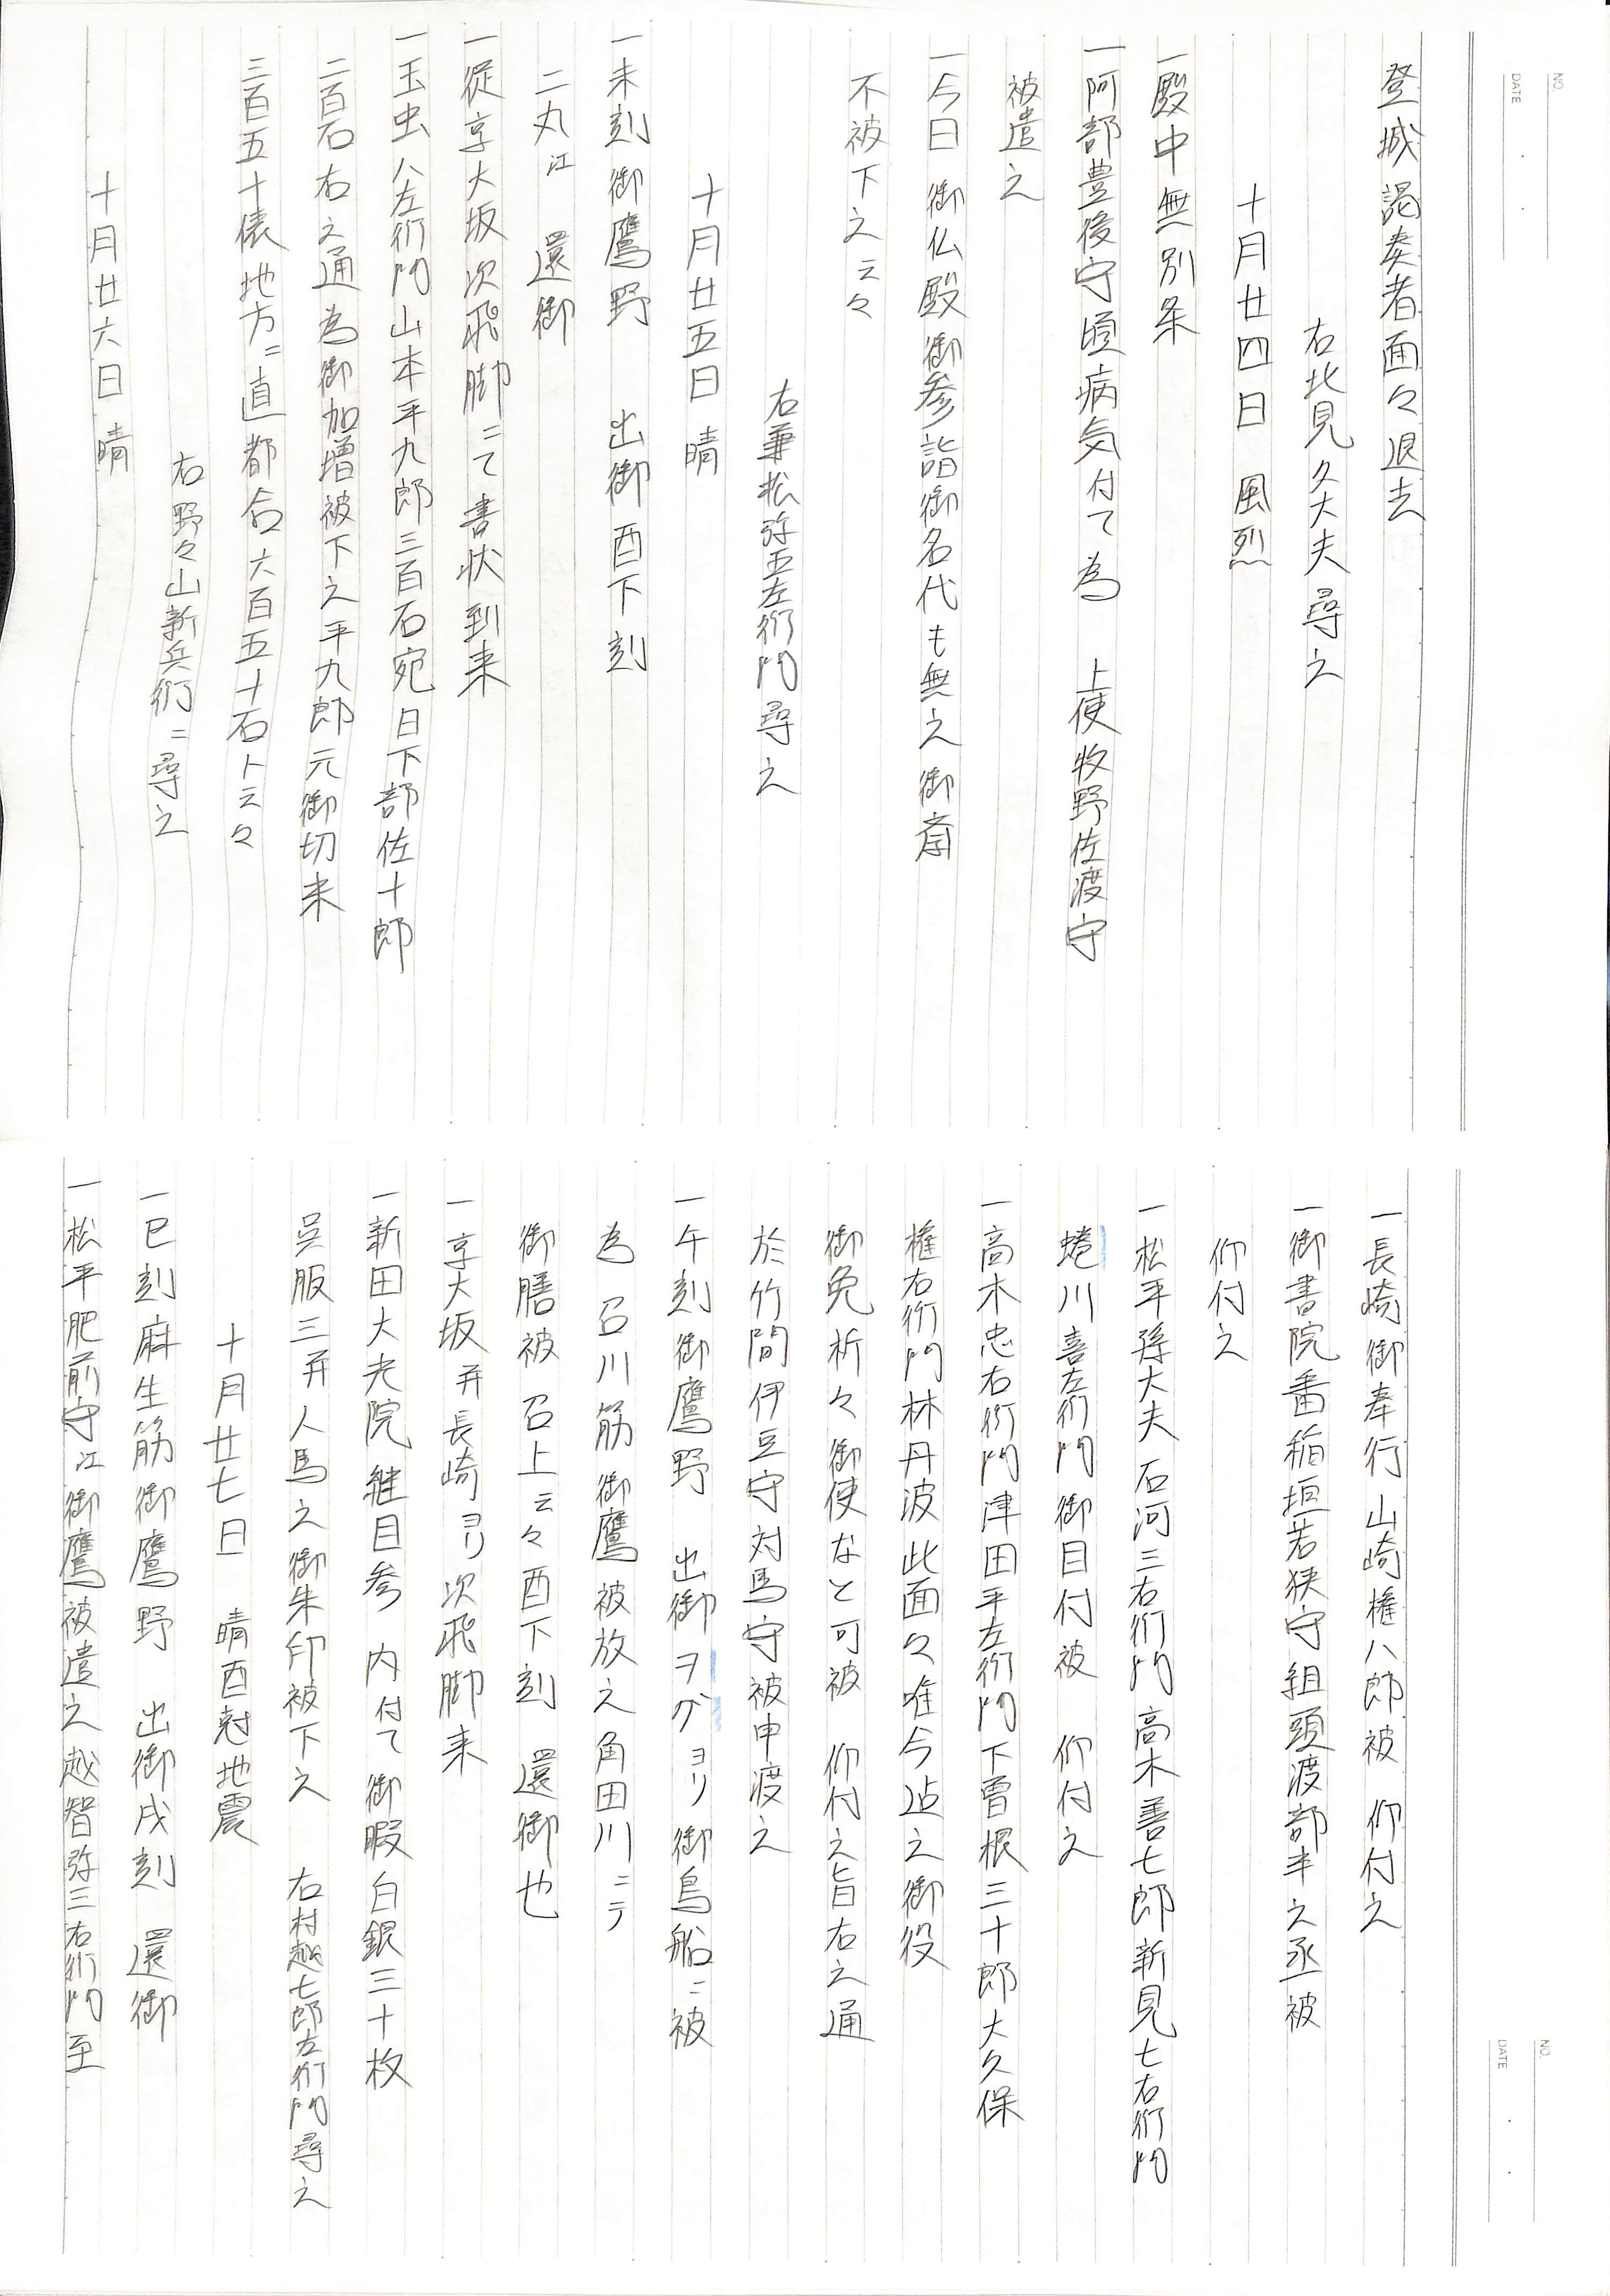 NO.
DATE
登城謁奏者面々退去
右北見久大夫尋之
十月廿四日 風烈
一殿中無別条
一阿部豊後守頃病気付て為 上使牧野佐渡守
被遣之
一今日 御仏殿御参詣御名代も無之御斎
不被下之云々
右兼松弥五左衛門尋之
十月廿五日 晴
一未刻御鷹野 出御酉下刻
二丸江 還御
一従京大坂次飛脚ニて書状到来
一玉虫八左衛門山本平九郎三百石宛日下部佐十郎
二百石右之通為御加増被下之平九郎元御切米
三百五十俵地方ニ直都合六百五十石ト云々
右野々山新兵衛ニ尋之
十月廿六日 晴
NO.
DATE
一長崎御奉行山崎権八郎被 仰付之
一御書院番稲垣若狭守組頭渡部半之丞被
仰付之
一松平孫大夫石河三右衛門高木善七郎新見七右衛門
蜷川喜左衛門御目付被 仰付之
一高木忠右衛門津田平左衛門下曽根三十郎大久保
権右衛門林丹波此面々唯今迠之御役
御免折々御使なと可被 仰付之旨右之通
於竹間伊豆守対馬守被申渡之
一午刻御鷹野 出御ヲグヨリ御鳥船ニ被
為 召川筋御鷹被放之角田川ニテ
御膳被 召上云々酉下刻 還御也
一京大坂并長崎ヨリ次飛脚来
一新田大光院継目参 内付て御暇白銀三十枚
呉服三并人馬之御朱印被下之 右村越七郎左衛門尋之
十月廿七日 晴酉尅地震
一巳刻麻生筋御鷹野 出御戌刻 還御
一松平肥前守江御鷹被遣之越智弥三右衛門至